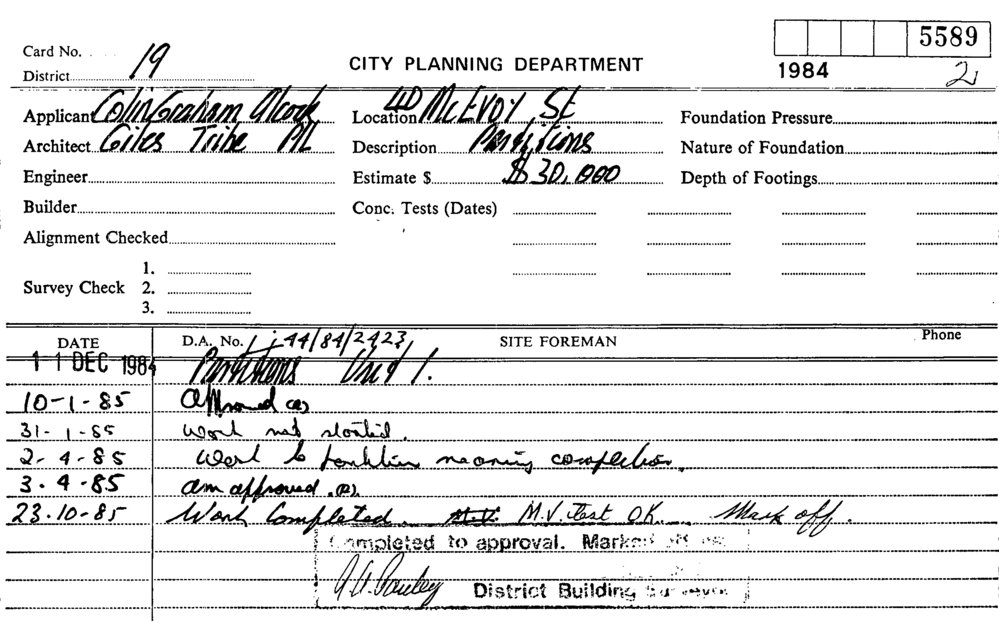 5589
Card No. 19
District
CITY PLANNING DEPARTMENT
1984 2
Applicant Colin Graham Alcock Location 40 McEvoy St Foundation Pressure
Architect Giles Tribe PL Description Partitions Nature of Foundation
Engineer Estimate $ $30,000 Depth of Footings
Builder Conc. Tests (Dates)
Alignment Checked
1.
Survey Check 2.
3.
DATE D.A. No. 44/84/2423 SITE FOREMAN Phone
11 DEC 1984 Partitions Unit 1.
10-1-85 Approved
31-1-85 Work not started.
2-4-85 Work to nearing completion.
3.4.85 am approved.
23.10-85 Work Completed. M.V. test OK. Mark off.
Completed to approval. Marked off
District Building Surveyor